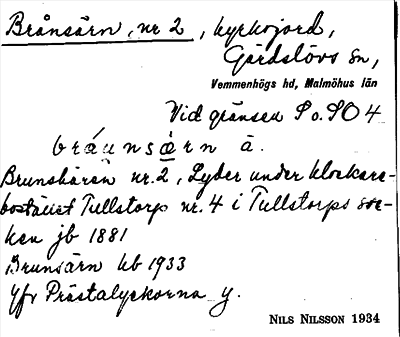 Brånsärn, nr 2, kyrkojord,
Gärdslövs sn,
Vemmenhögs hd, Malmöhus län
Vid gränsen S o. SO 4
bråunsærn ä.
Brunskärån nr. 2, Lyder under klockare-
bostället Tullstorp nr. 4 i Tullstorps soc-
ken jb 1881
Brunsärn kb 1933
Yfr Prästalyckorna y.
NILS NILSSON 1934